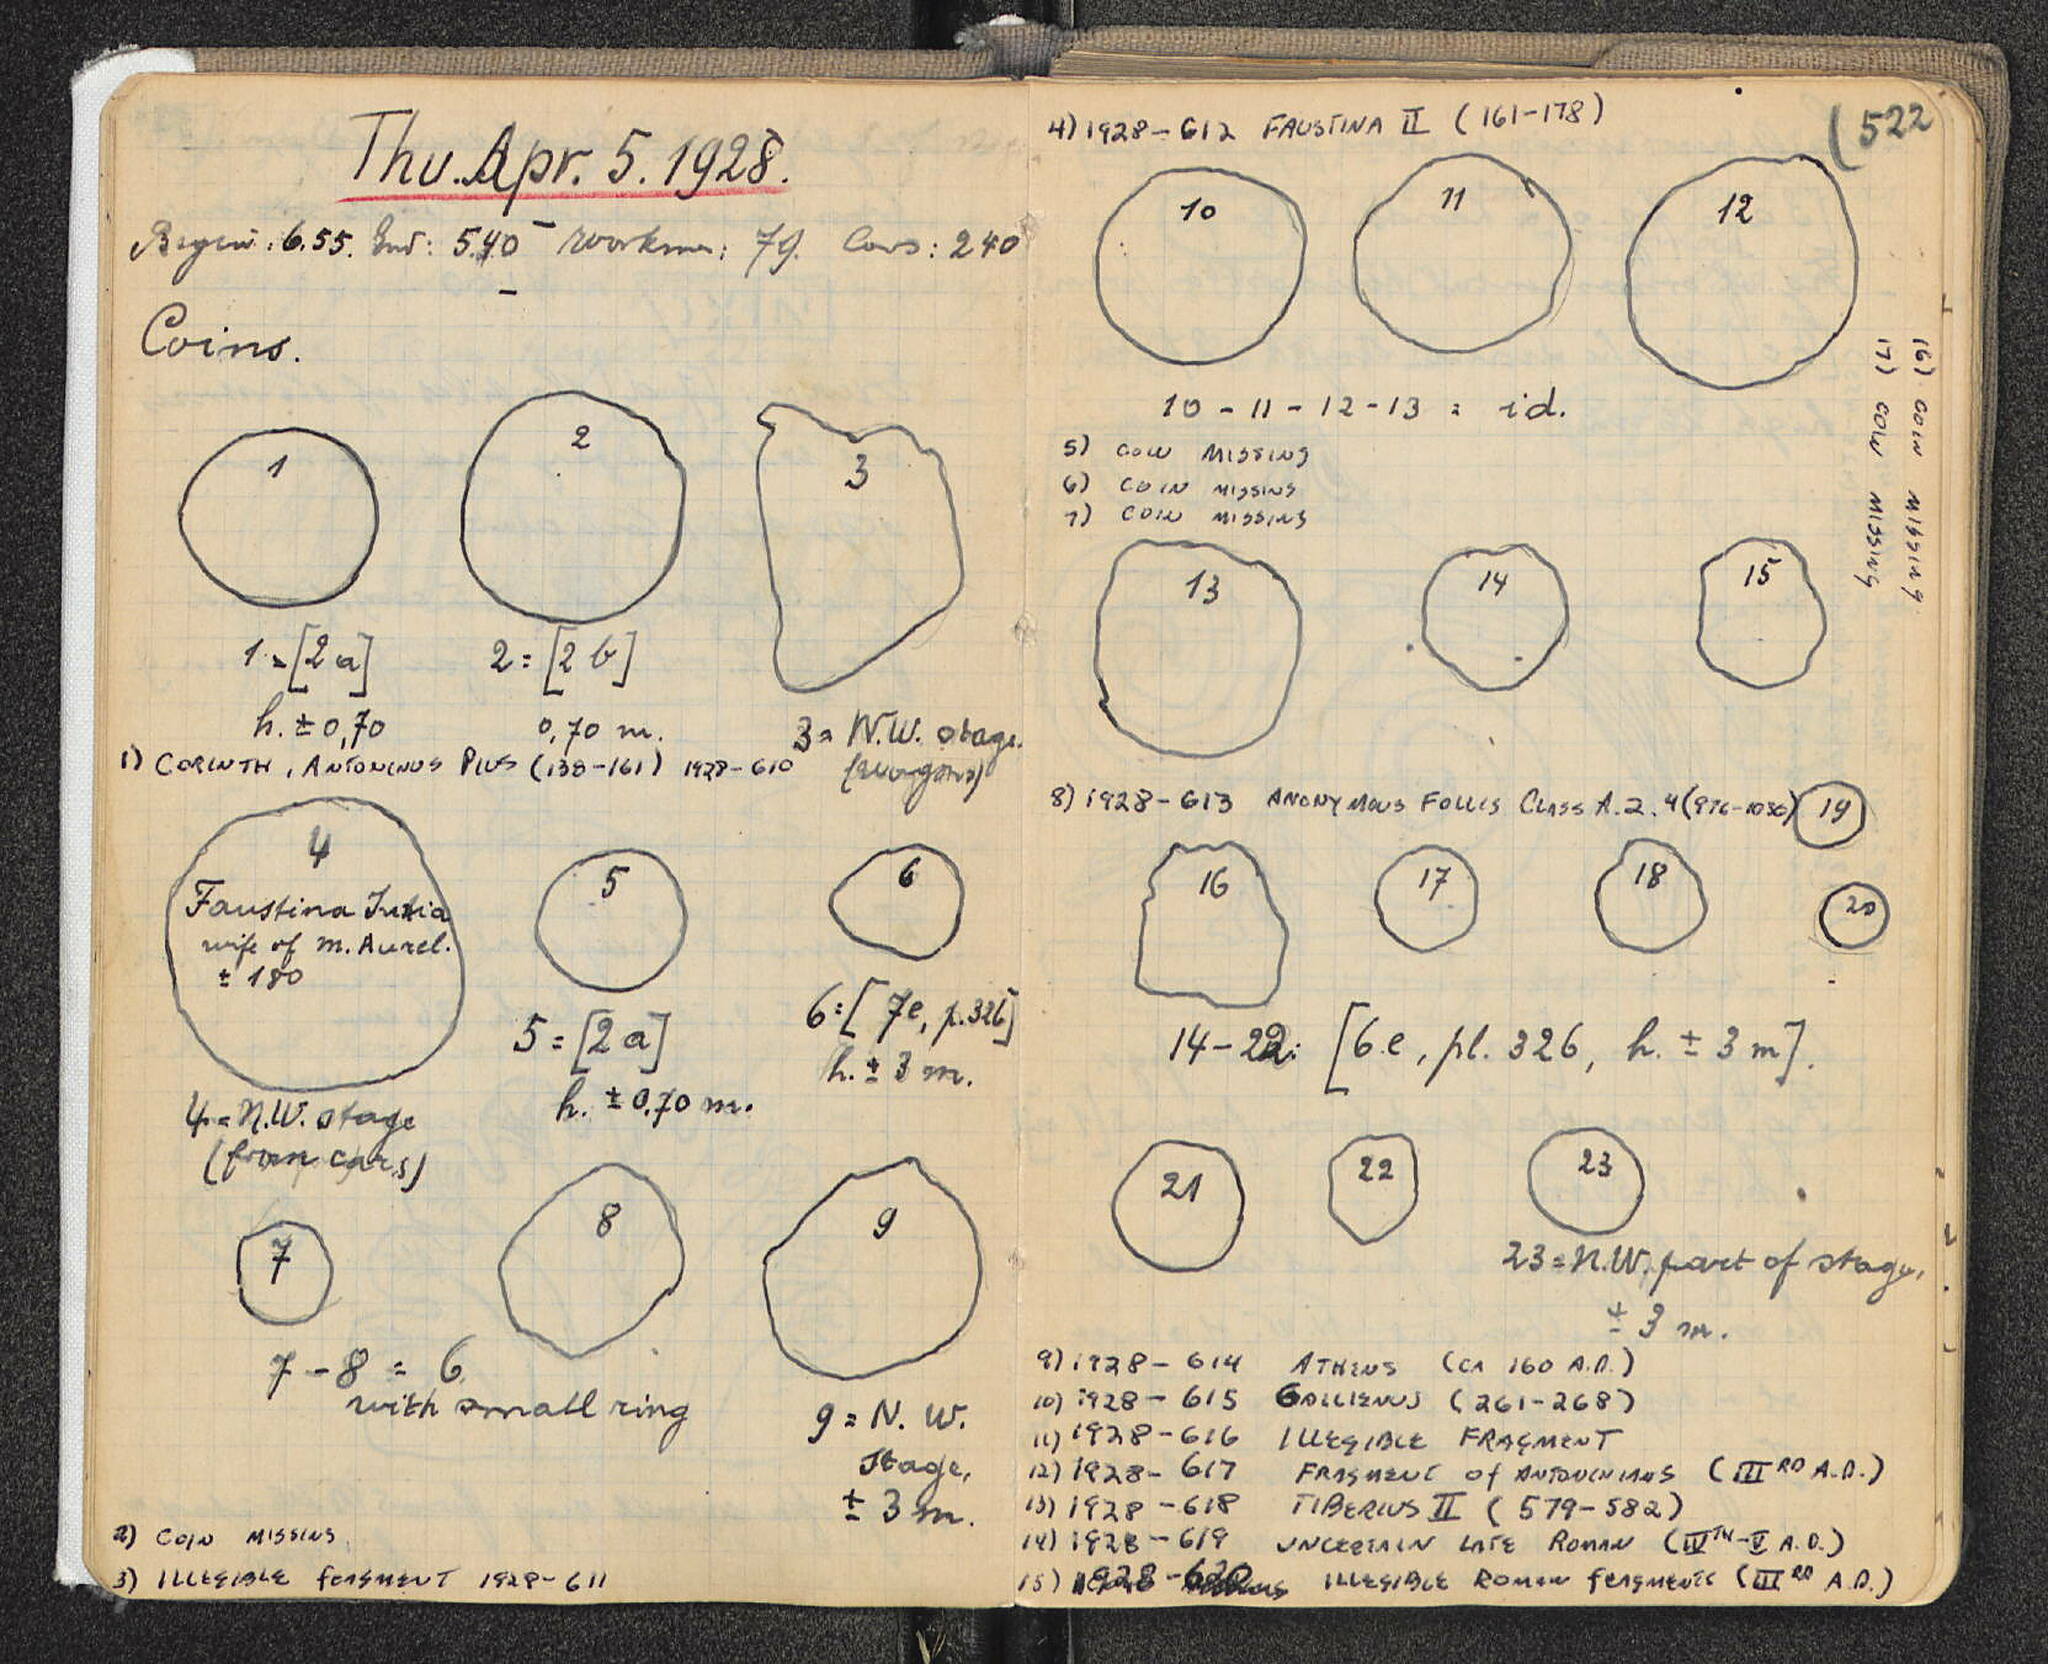 Thu. Apr. 5. 1928.
Begin: 6.55. End: 5.40 Workmen: 79. Cars: 240
Coins.
1
2
3
1 = [2a]
h. ± 0,70
2 = [2b]
0,70 m.
3 = N.W. stage.
1) CORINTH, ANTONINUS PIUS (138-161) 1928-610
4
Faustina Iunia
wife of M. Aurel.
± 180
5
6
4 = N.W. stage
(from cars)
5 = [2a]
h. ± 0,70 m.
6 = [7e, p. 326]
h. ± 3 m.
7
8
9
7 - 8 = 6
with small ring
9 = N. W.
stage,
± 3 m.
2) COIN MISSING
3) ILLEGIBLE FRAGMENT 1928-611
(522
4) 1928-612 FAUSTINA II (161-178)
10
11
12
10 - 11 - 12 - 13 = id.
5) COIN MISSING
6) COIN MISSING
7) COIN MISSING
16) COIN MISSING
17) COIN MISSING
13
14
15
8) 1928-613 ANONYMOUS FOLLIS CLASS A.2.4 (976-1030)
19
16
17
18
20
14-22: [6e, pl. 326, h. ± 3 m].
21
22
23
23 = N.W. part of stage,
± 3 m.
9) 1928-614 ATHENS (CA 160 A.D.)
10) 1928-615 GALLIENUS (261-268)
11) 1928-616 ILLEGIBLE FRAGMENT
12) 1928-617 FRAGMENT OF ANTONINIANS (III RD A.D.)
13) 1928-618 TIBERIUS II (579-582)
14) 1928-619 UNCERTAIN LATE ROMAN (IV TH-V A.D.)
15) 1928-620 ILLEGIBLE ROMAN FRAGMENTS (III RD A.D.)